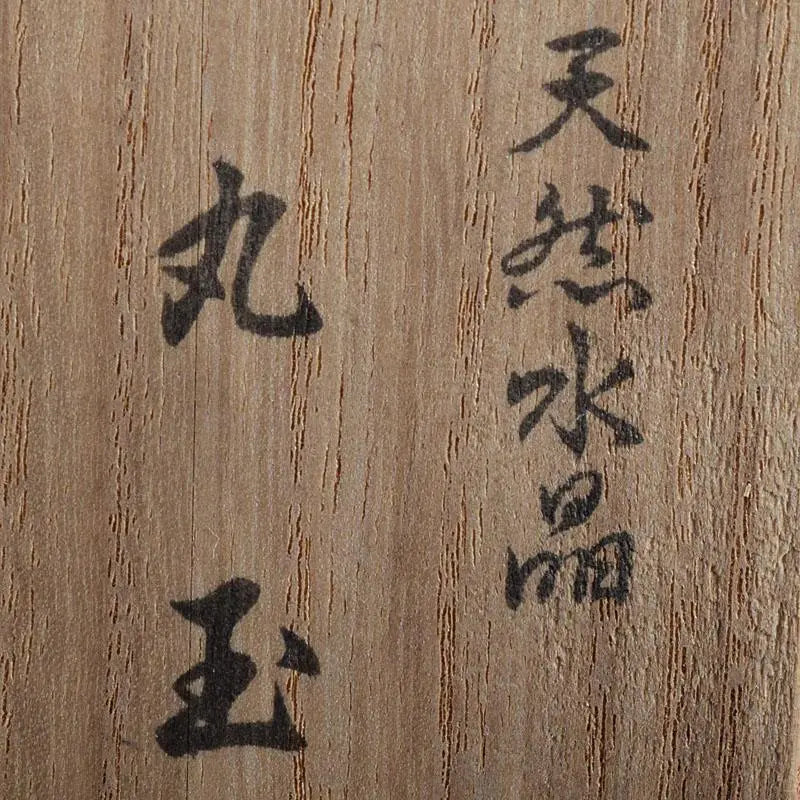 天然水晶
丸玉